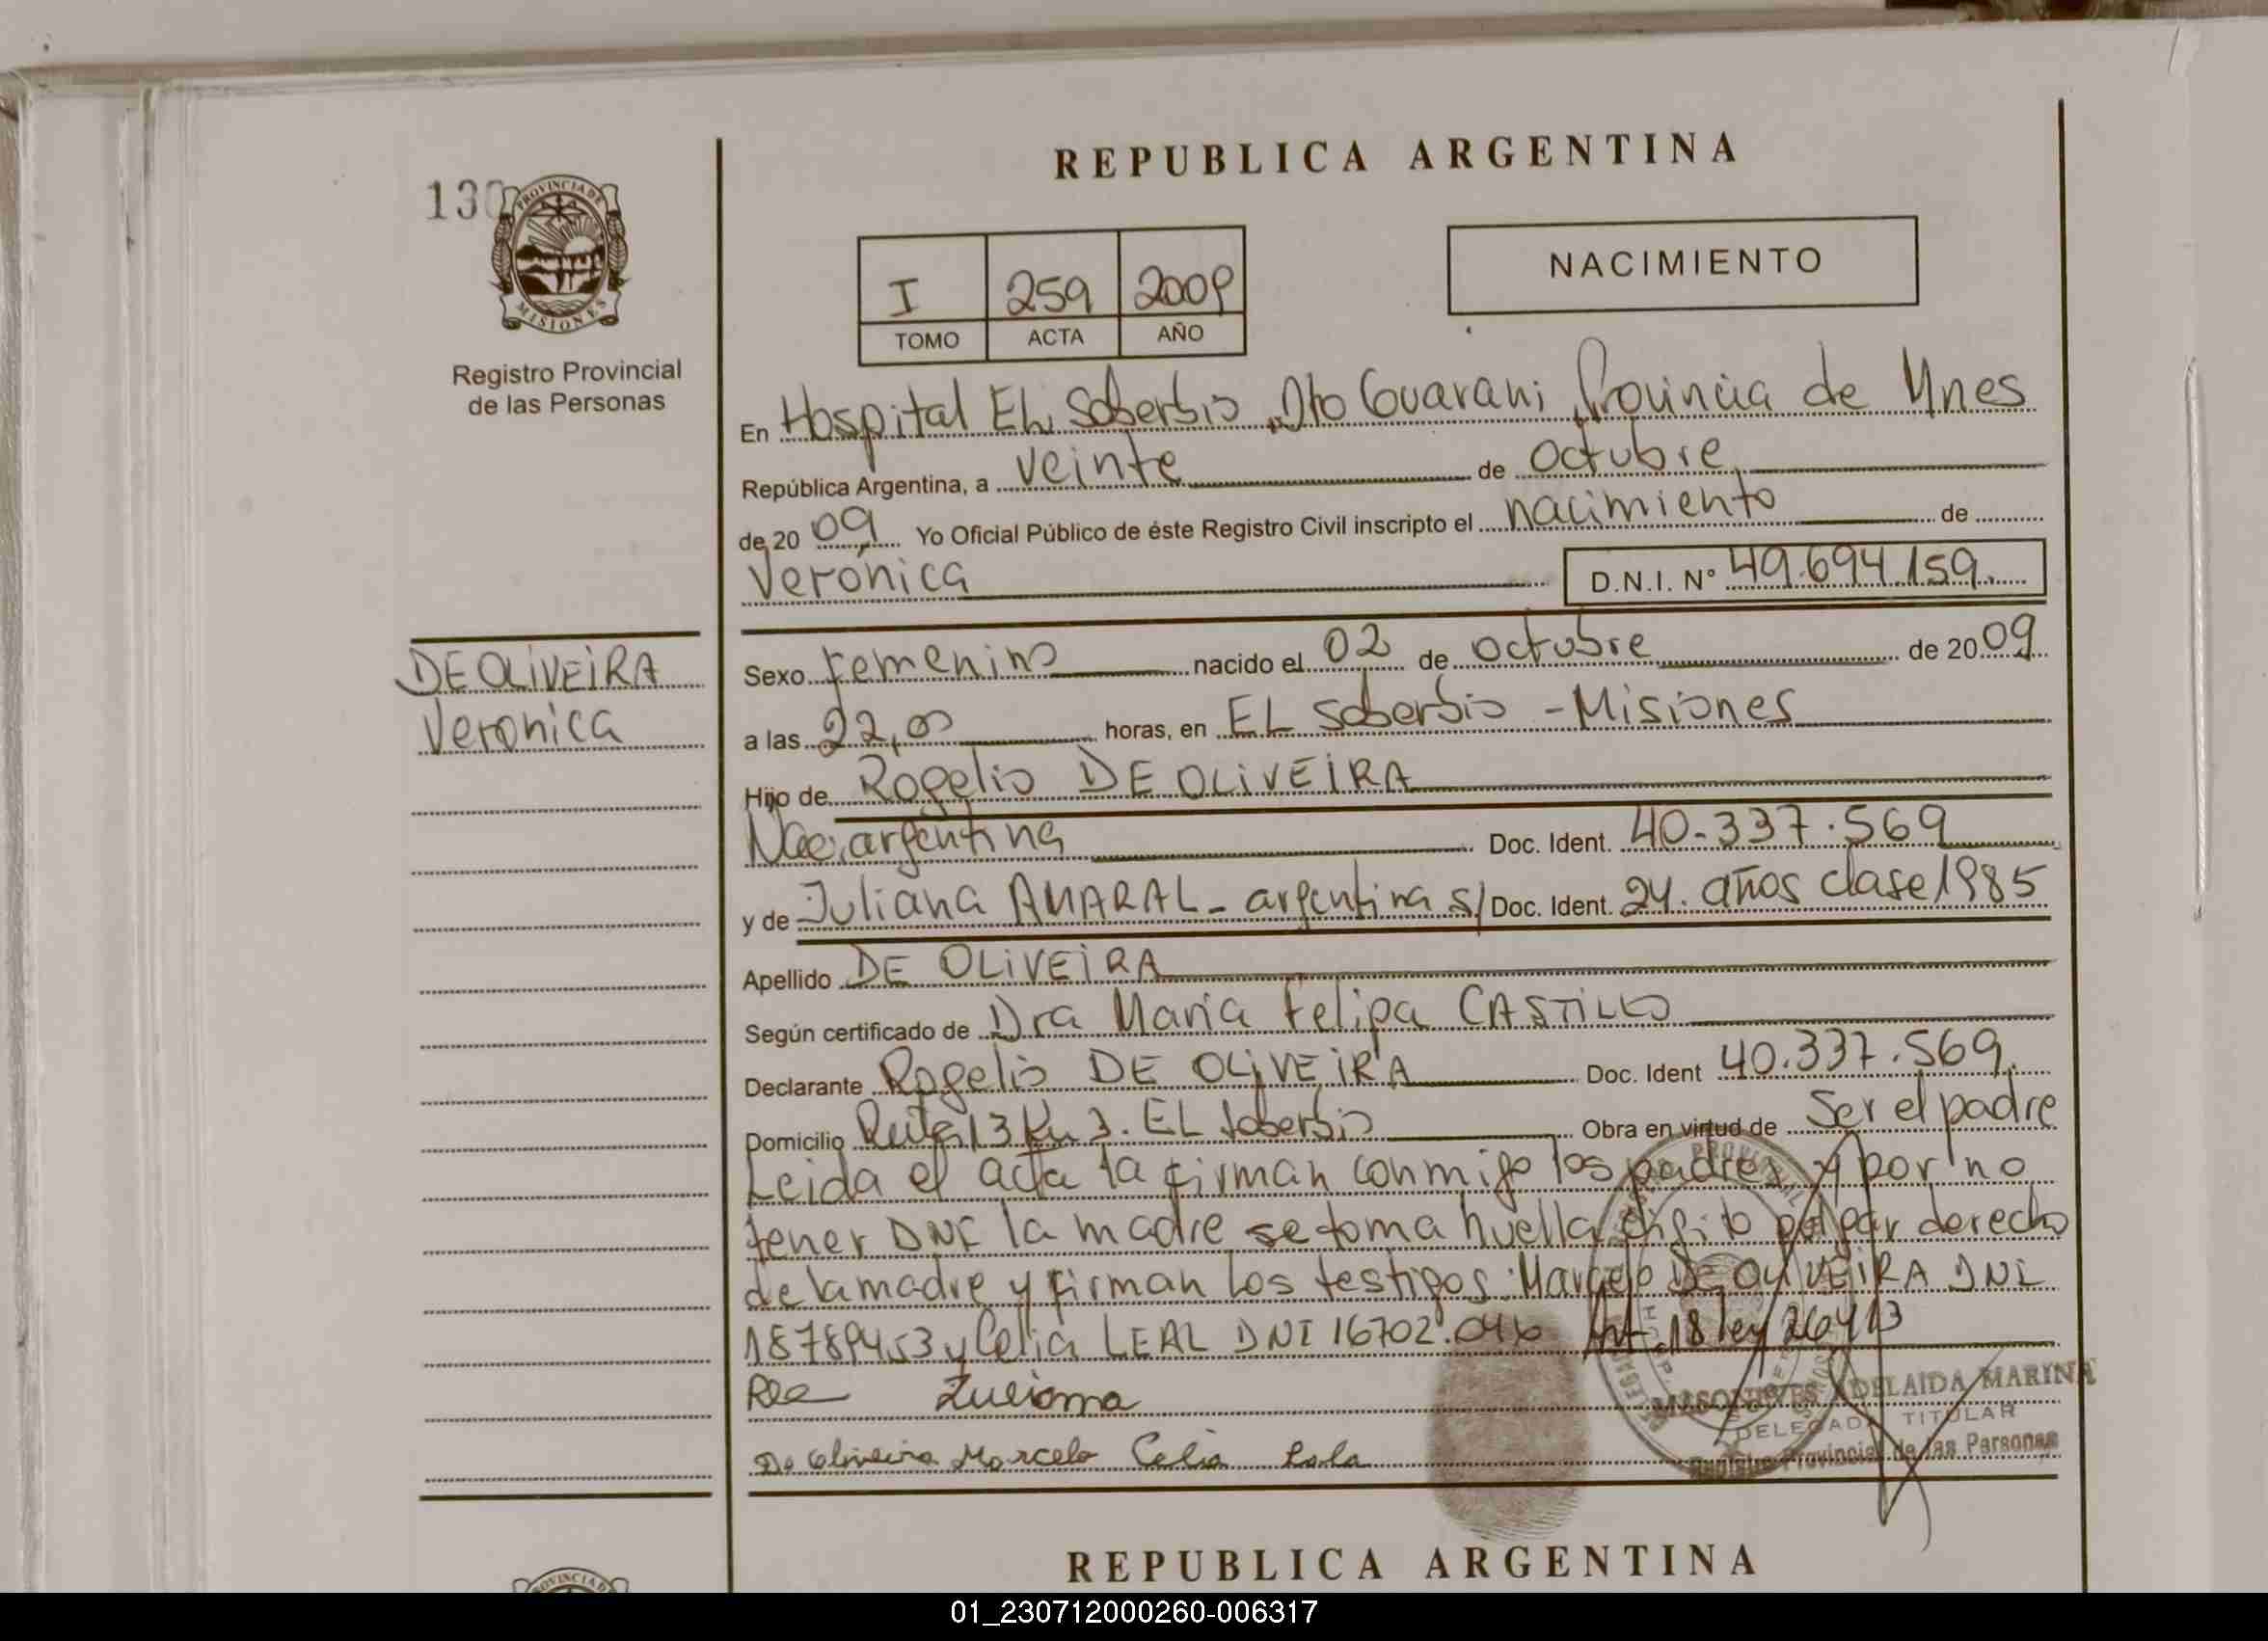 REPUBLICA ARGENTINA
130
PROVINCIA DE
MISIONES
Registro Provincial
de las Personas
I 259 2009
TOMO ACTA AÑO
NACIMIENTO
En Hospital EL Soberbio, Dto Guarani, Provincia de Mnes
República Argentina, a veinte de octubre
de 20 09 Yo Oficial Público de éste Registro Civil inscripto el nacimiento de
Verónica D.N.I. N° 49.694.159.
DE OLIVEIRA
Veronica
Sexo femenino nacido el 02 de octubre de 20 09
a las 22,00 horas, en EL Soberbio - Misiones
Hijo de Rogelio DE OLIVEIRA
Nac. argentina Doc. Ident. 40.337.569
y de Juliana AMARAL - argentina s/ Doc. Ident. 24. años clase 1985
Apellido DE OLIVEIRA
Según certificado de Dra Maria Felipa CASTILLO
Declarante Rogelio DE OLIVEIRA Doc. Ident 40.337.569.
Domicilio Ruta 13 Km 3. EL Soberbio Obra en virtud de Ser el padre
Leida el acta la firman conmigo los padres y por no
tener DNI la madre se toma huella digito pulgar derecho
de la madre y firman los testigos: Marcelo DE OLIVEIRA DNI
18789453 y Celia LEAL DNI 16702.046 Art. 18 ley 26413
Zuliana
De Oliveira Marcelo Celia
ADELAIDA MARINA
DELEGADA TITULAR
Registro Provincial de las Personas
REPUBLICA ARGENTINA
01_230712000260-006317